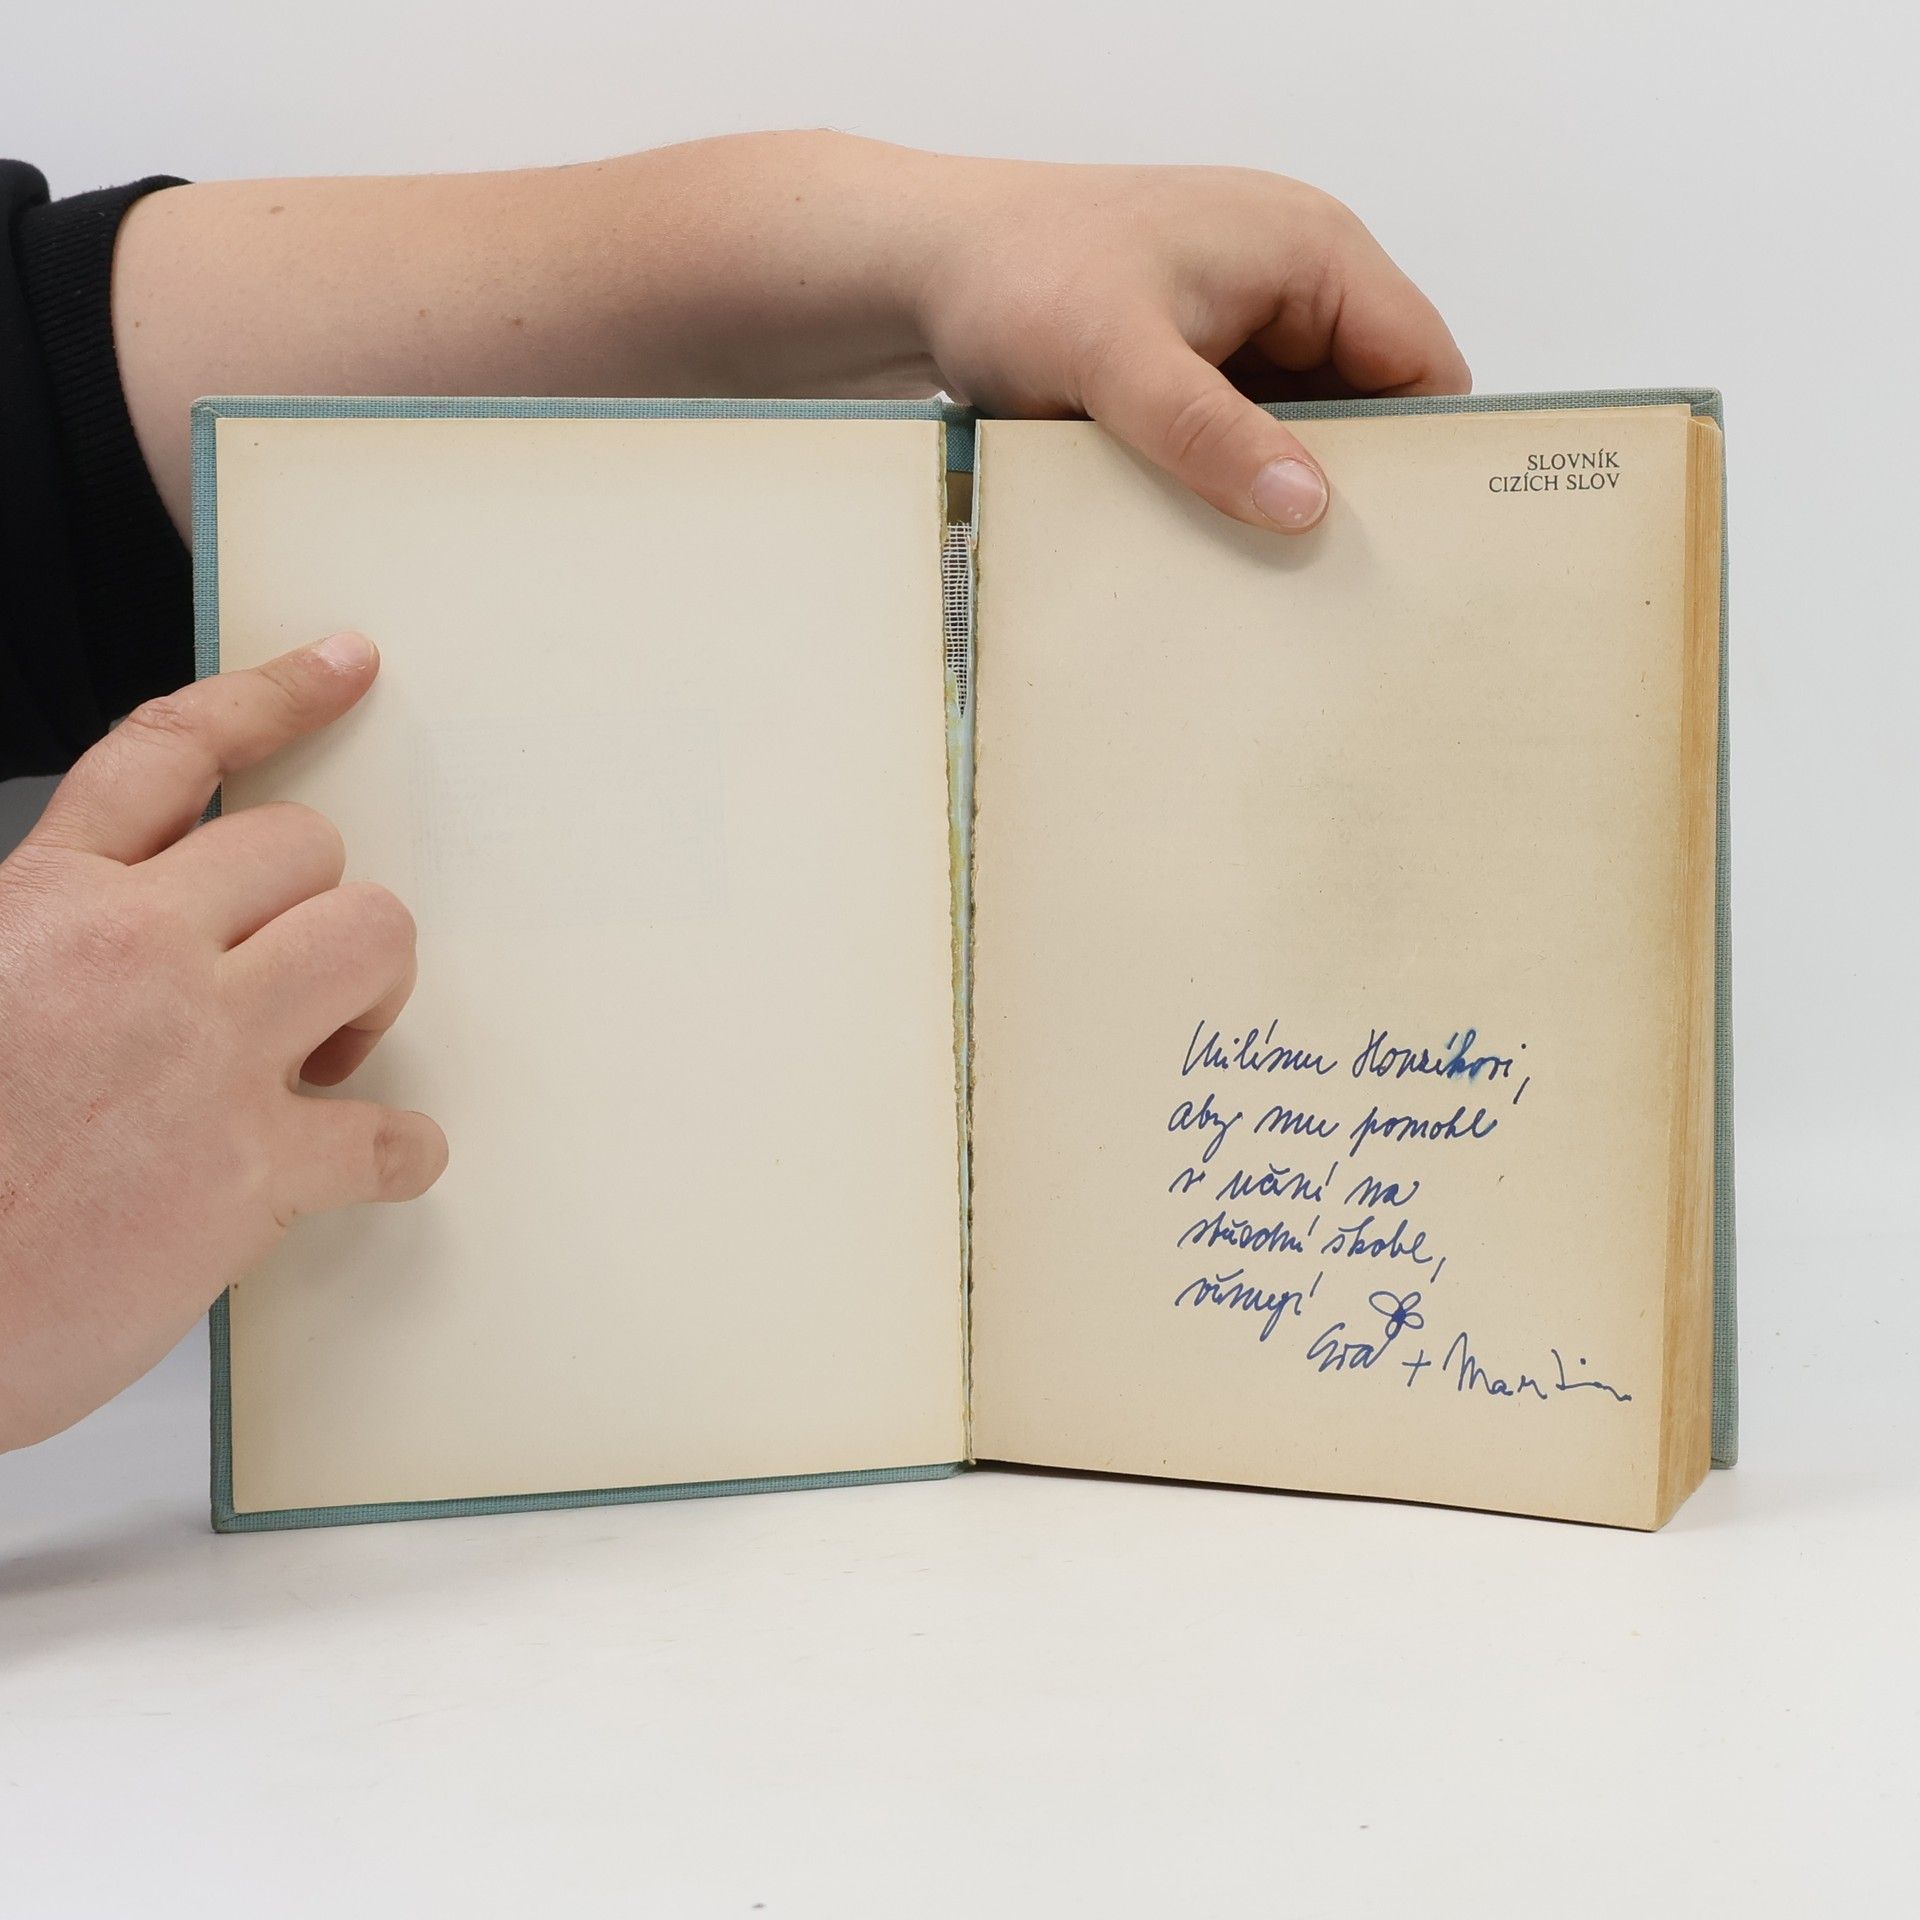 SLOVNÍK
CIZÍCH SLOV
Milému Honzíkovi,
aby mu pomohl
v učení na
střední škole,
věnují
Eva + Martin